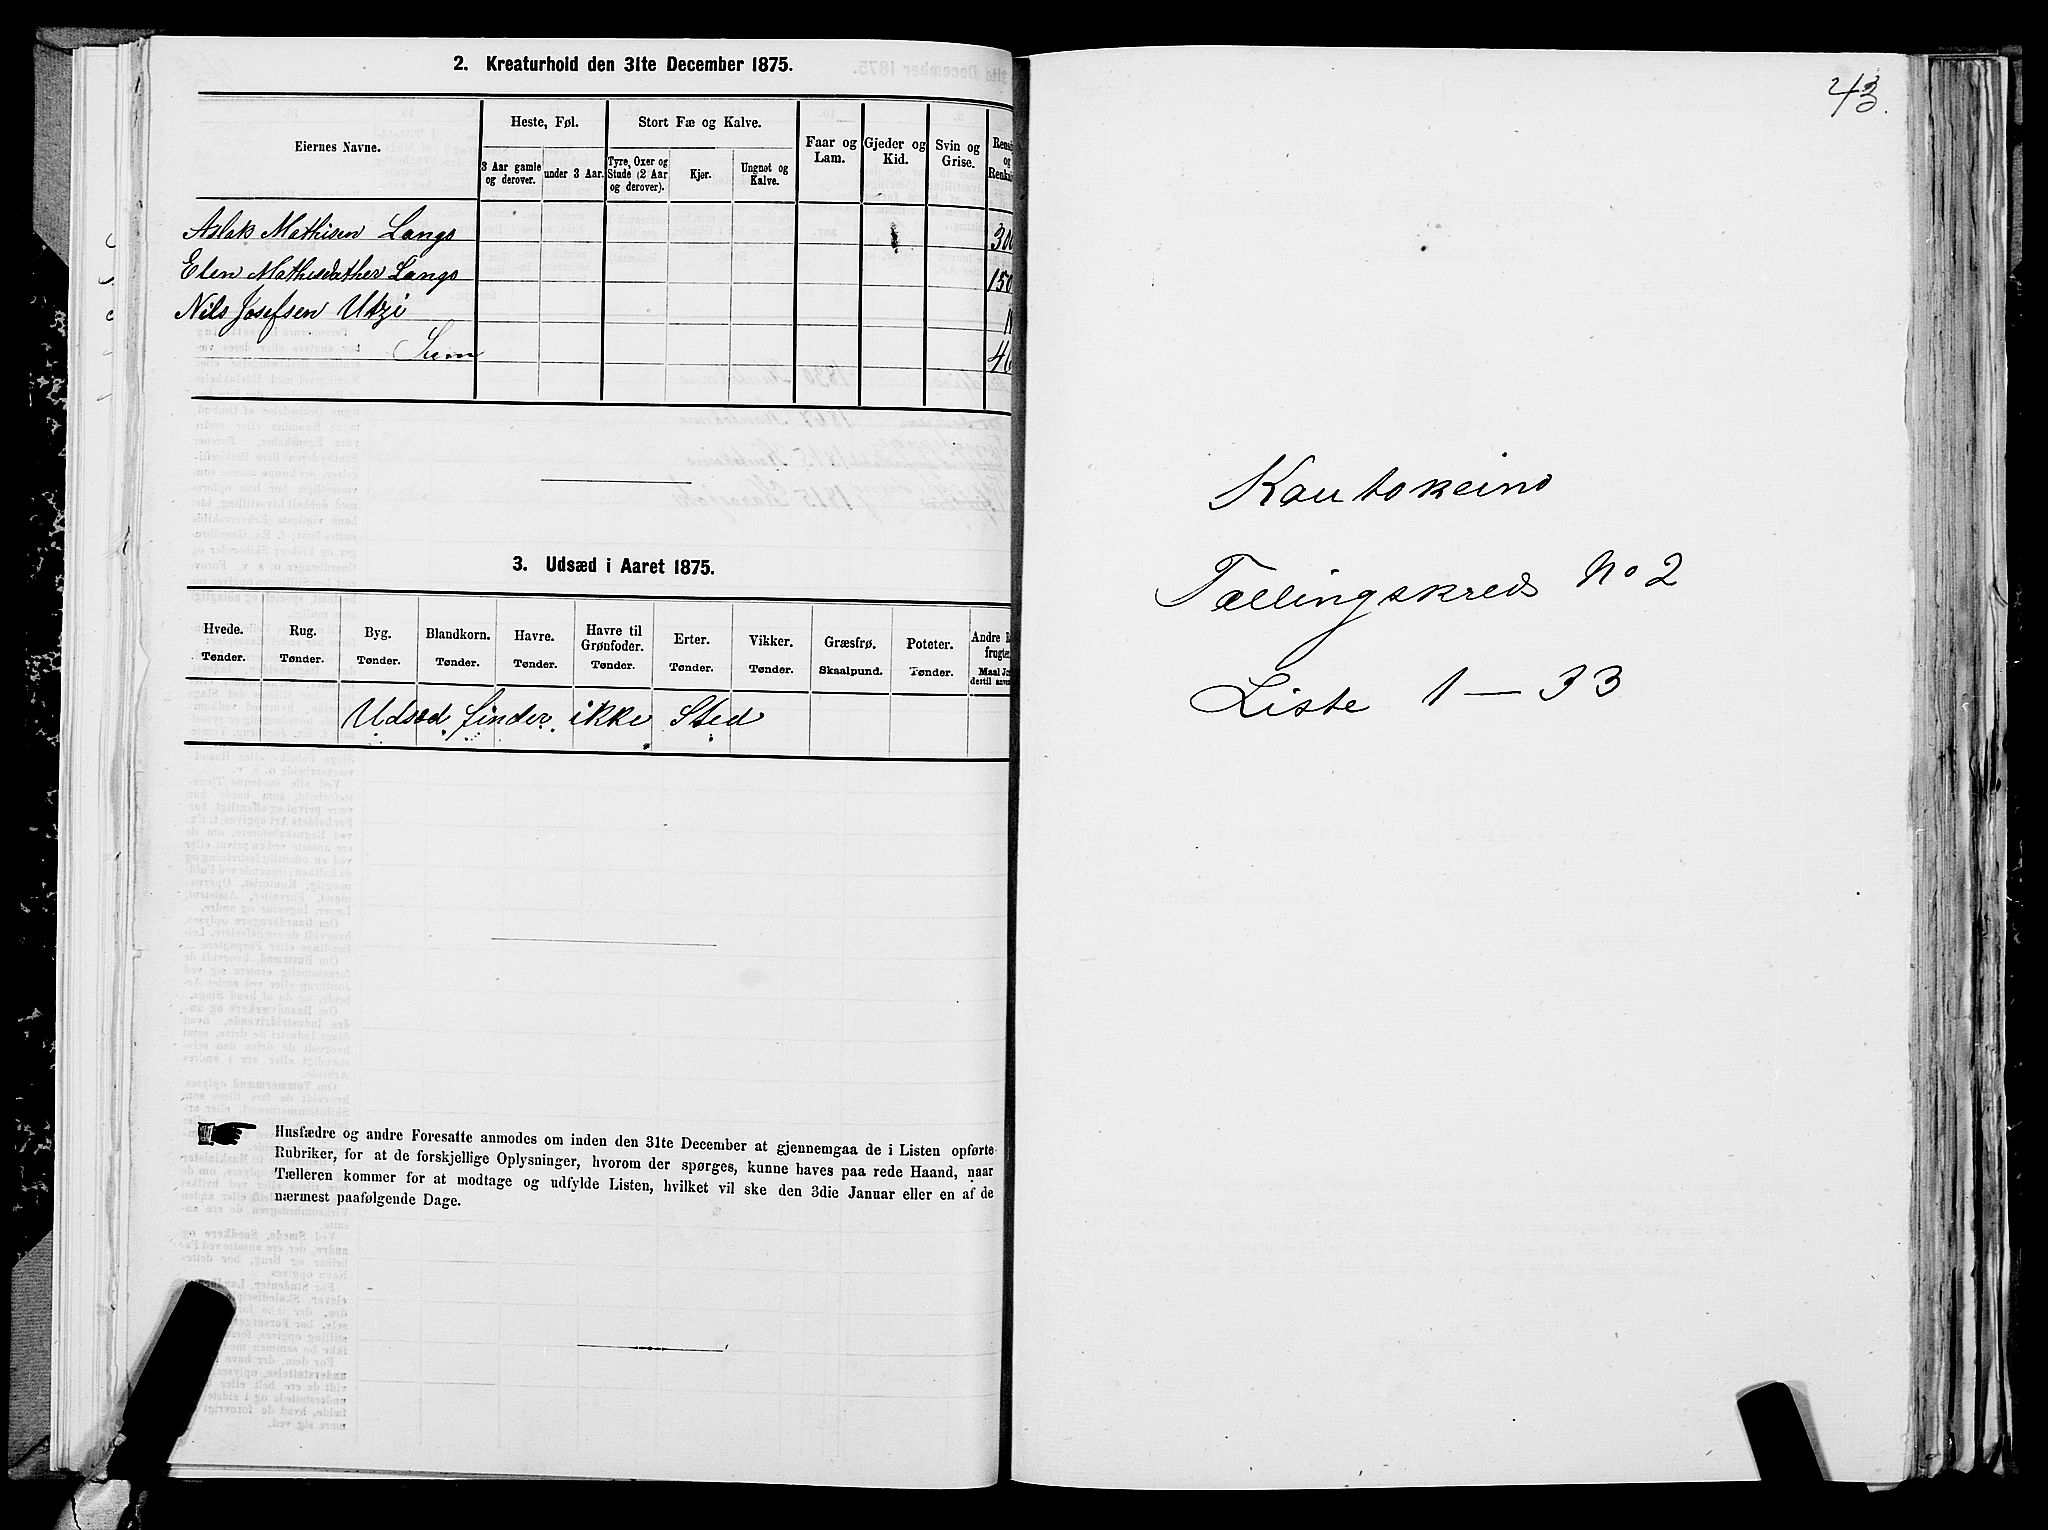 2. Kreaturhold den 31te December 1875.
Eiernes Navne.
Heste, Føl.
Stort Fæ og Kalve.
Faar og Lam.
Gjeder og Kid.
Svin og Grise.
Rens
og
Renka
3 Aar gamle og derover.
under 3 Aar.
Tyre, Oxer og Stude (2 Aar og derover).
Kjør.
Ungnøt og Kalve.
Aslak Mathisen Langs 300
Elen Mathisdather Langs 150
Nils Josefsen Utzi 1
Sum 46
3. Udsæd i Aaret 1875.
Hvede. Rug. Byg. Blandkorn. Havre. Havre til Grønfoder. Erter. Vikker. Græsfrø. Poteter. Andre
frugter
Tønder. Tønder. Tønder. Tønder. Tønder. Tønder. Tønder. Tønder. Skaalpund. Tønder. Maal
dertil
Udsæd finder ikke Sted
Husfædre og andre Foresatte anmodes om inden den 31te December at gjennemgaa de i Listen opførte
Rubriker, for at de forskjellige Oplysninger, hvorom der spørges, kunne haves paa rede Haand, naar
Tælleren kommer for at modtage og udfylde Listen, hvilket vil ske den 3die Januar eller en af de
nærmest paafølgende Dage.
43.
Kautokeino
Tællingskreds No 2
Liste 1 — 33